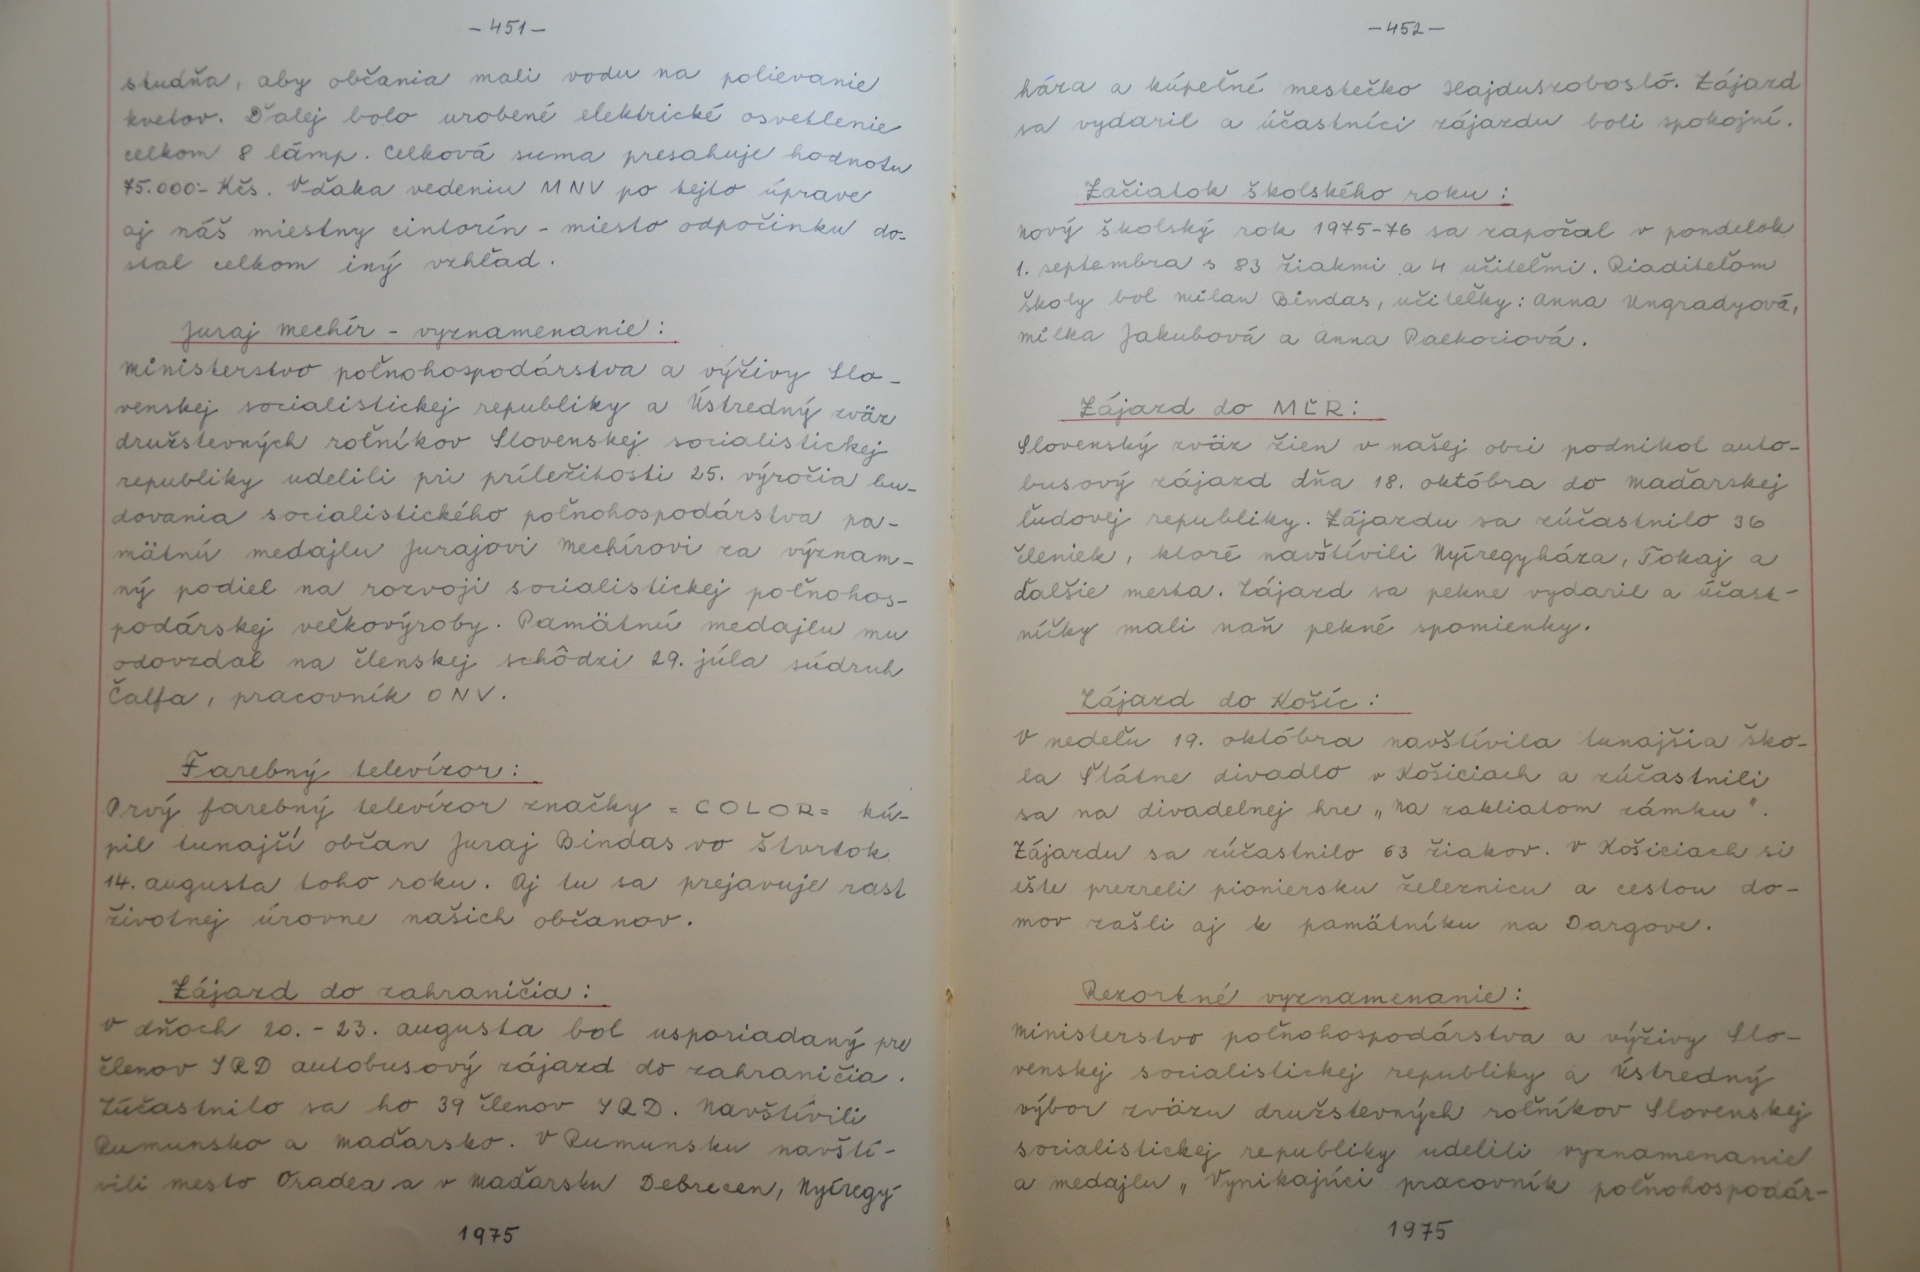 -451-
studňa, aby občania mali vodu na polievanie
kvetov. Ďalej bolo urobené elektrické osvetlenie
celkom 8 lámp. Celková suma presahuje hodnotu
75.000.- Kčs. Vďaka vedeniu MNV po tejto úprave
aj náš miestny cintorín - miesto odpočinku do-
stal celkom iný vzhľad.
Juraj Mechír - vyznamenanie:
Ministerstvo poľnohospodárstva a výživy Slo-
venskej socialistickej republiky a Ústredný zväz
družstevných roľníkov Slovenskej socialistickej
republiky udelili pri príležitosti 25. výročia bu-
dovania socialistického poľnohospodárstva pa-
mätnú medajlu Jurajovi Mechírovi za význam-
ný podiel na rozvoji socialistickej poľnohos-
podárskej veľkovýroby. Pamätnú medajlu mu
odovzdal na členskej schôdzi 29. júla súdruh
Čalfa, pracovník ONV.
Farebný televízor:
Prvý farebný televízor značky =COLOR= kú-
pil tunajší občan Juraj Bindas vo štvrtok
14. augusta toho roku. Aj tu sa prejavuje rast
životnej úrovne našich občanov.
Zájazd do zahraničia:
V dňoch 20.-23. augusta bol usporiadaný pre
členov JRD autobusový zájazd do zahraničia.
Zúčastnilo sa ho 39 členov JRD. Navštívili
Rumunsko a Maďarsko. V Rumunsku navští-
vili mesto Oradea a v Maďarsku Debrecen, Nyíregy-
1975
-452-
háza a kúpeľné mestečko Hajduszobosló. Zájazd
sa vydaril a účastníci zájazdu boli spokojní.
Začiatok školského roku:
Nový školský rok 1975-76 sa započal v pondelok
1. septembra s 83 žiakmi a 4 učiteľmi. Riaditeľom
školy bol Milan Bindas, učiteľky: Anna Ungradyová,
Milka Jakubová a Anna Paekoriová.
Zájazd do MĽR:
Slovenský zväz žien v našej obci podnikol auto-
busový zájazd dňa 18. októbra do Maďarskej
ľudovej republiky. Zájazdu sa zúčastnilo 36
členiek, ktoré navštívili Nyíregyháza, Tokaj a
ďalšie mesta. Zájazd sa pekne vydaril a účast-
níčky mali naň pekné spomienky.
Zájazd do Košíc:
V nedeľu 19. októbra navštívila tunajšia ško-
la Štátne divadlo v Košiciach a zúčastnili
sa na divadelnej hre „Na zakliatom zámku".
Zájazdu sa zúčastnilo 63 žiakov. V Košiciach si
ešte prezreli pioniersku železnicu a cestou do-
mov zašli aj k pamätníku na Dargove.
Rezortné vyznamenanie:
Ministerstvo poľnohospodárstva a výživy Slo-
venskej socialistickej republiky a Ústredný
výbor zväzu družstevných roľníkov Slovenskej
socialistickej republiky udelili vyznamenanie
a medajlu „Vynikajúci pracovník poľnohospodár-
1975